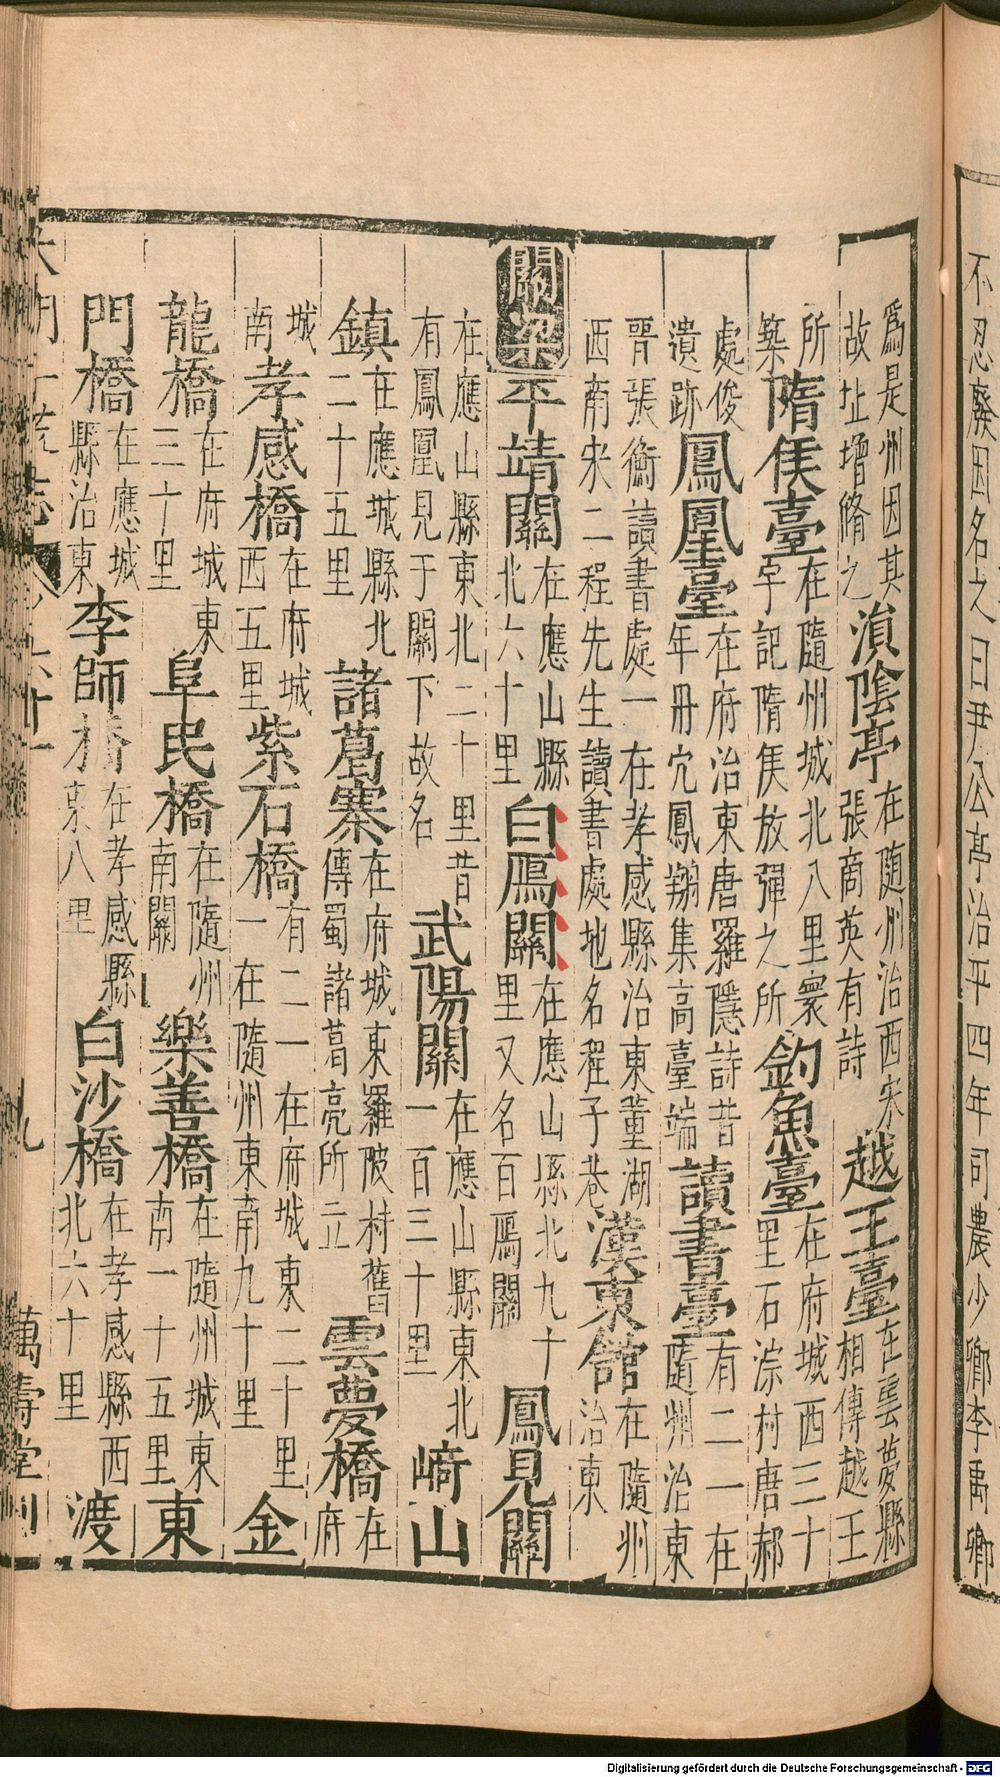 不忍廢因名之曰尹公亭治平四年司農少卿李禹卿
為是州因其故址增脩之溳陰亭在随州治西宋張商英有詩越王臺在雲夢縣相傳越王
所築隋侯臺在隨州城北八里寰宇記隋侯放彈之所釣魚臺在府城西三十里石淙村唐郝
處俊遺跡鳳凰臺在府治東唐羅隱詩昔年冊穴鳳翔集高臺端讀書臺有二一在隨州治東
晉張衡讀書處一在孝感縣治東董湖西南宋二程先生讀書處地名程子巷漢東館在隨州治東
關梁平靖關在應山縣北六十里白鴈關在應山縣北九十里又名百鴈關鳳見關
在應山縣東北二十里昔有鳳凰見于關下故名武陽關在應山縣東北一百三十里﨑山
鎮在應城縣北二十五里諸葛寨在府城東羅陂村舊傳蜀諸葛亮所立雲夢橋在府
城南孝感橋在府城西五里紫石橋有二一在府城東二十里一在隨州東南九十里金
龍橋在府城東三十里阜民橋在隨州南關樂善橋在隨州城東南一十五里東
門橋在應城縣治東李師橋在孝感縣東八里白沙橋在孝感縣西北六十里渡
大明一統志 九 萬壽堂刊
Digitalisierung gefördert durch die Deutsche Forschungsgemeinschaft - DFG